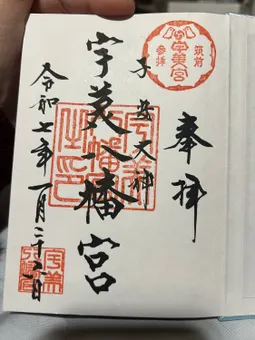 奉拝
筑前
宇美宮
参拝
子安大神
宇美八幡宮
宇美
八幡宮
之印
令和七年一月二十六日
宇美
八幡宮